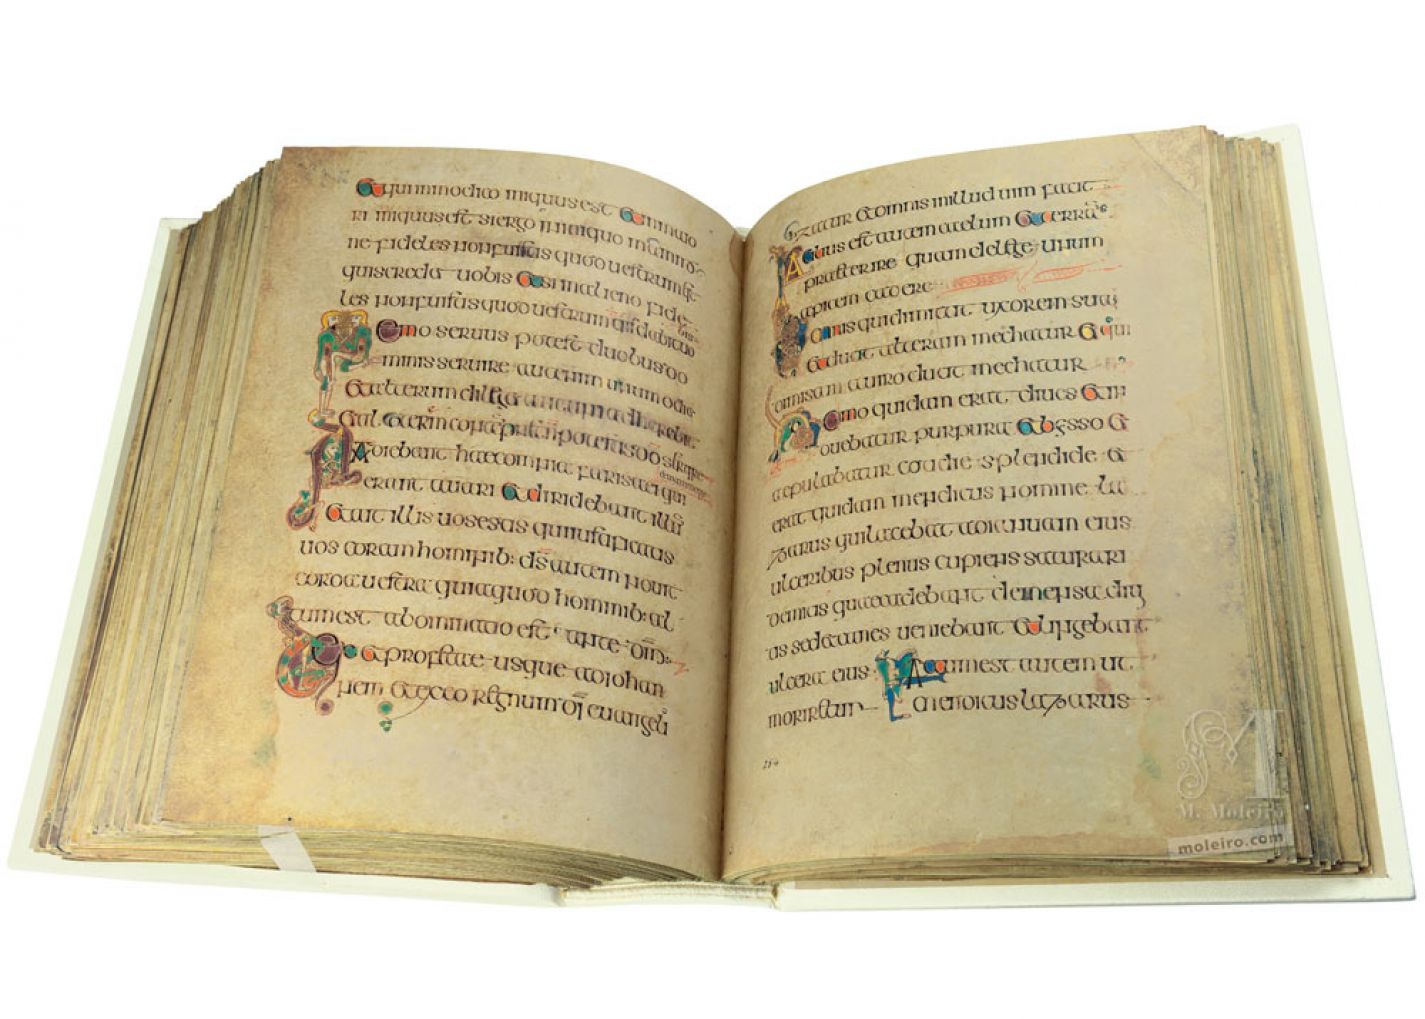 Et qui in modico iniquus est et in maio
ri iniquus est si ergo in iniquo mammo
ne fideles non fuistis quod uestrum est
quis credet uobis et si in alieno fide
les non fuistis quod uestrum est quis dabit uo
Nemo seruus potest duobus do
minis seruire aut enim unum odiet
et alterum diliget aut uni adherebit
et alterum contempnet non potestis do seruire
Audiebant haec omnia farissaei qui
erant auari et diridebant illum
et ait illis uos estis qui iustificatis
uos coram hominib: ds autem nouit
corda uestra quia quod hominib: al
tum est abominatio est apute dm:
Lex et profetae usque ad iohan
nem et ex eo regnum di euangeli
zatur et omnis in illud uim facit
Facilius est autem caelum et terrā
praeterire quam de lege unum
apicem cadere
Omnis qui dimittit uxorem suam
et ducit alteram mechatur et qui
dimisam a uiro ducit mechatur
Homo quidam erat diues et in
duebatur purpura et bysso et
aepulabatur cotidie splendide et
erat quidam mendicus nomine la
zarus qui iacebat ad ianuam eius
ulceribus plenus cupiens saturari
de micis quae cadebant de mensa diu
itis sed et canes ueniebant et lingebant
ulcera eius Factum est autem ut
moriretur mendicus lazarus
264
M. Moleiro
moleiro.com